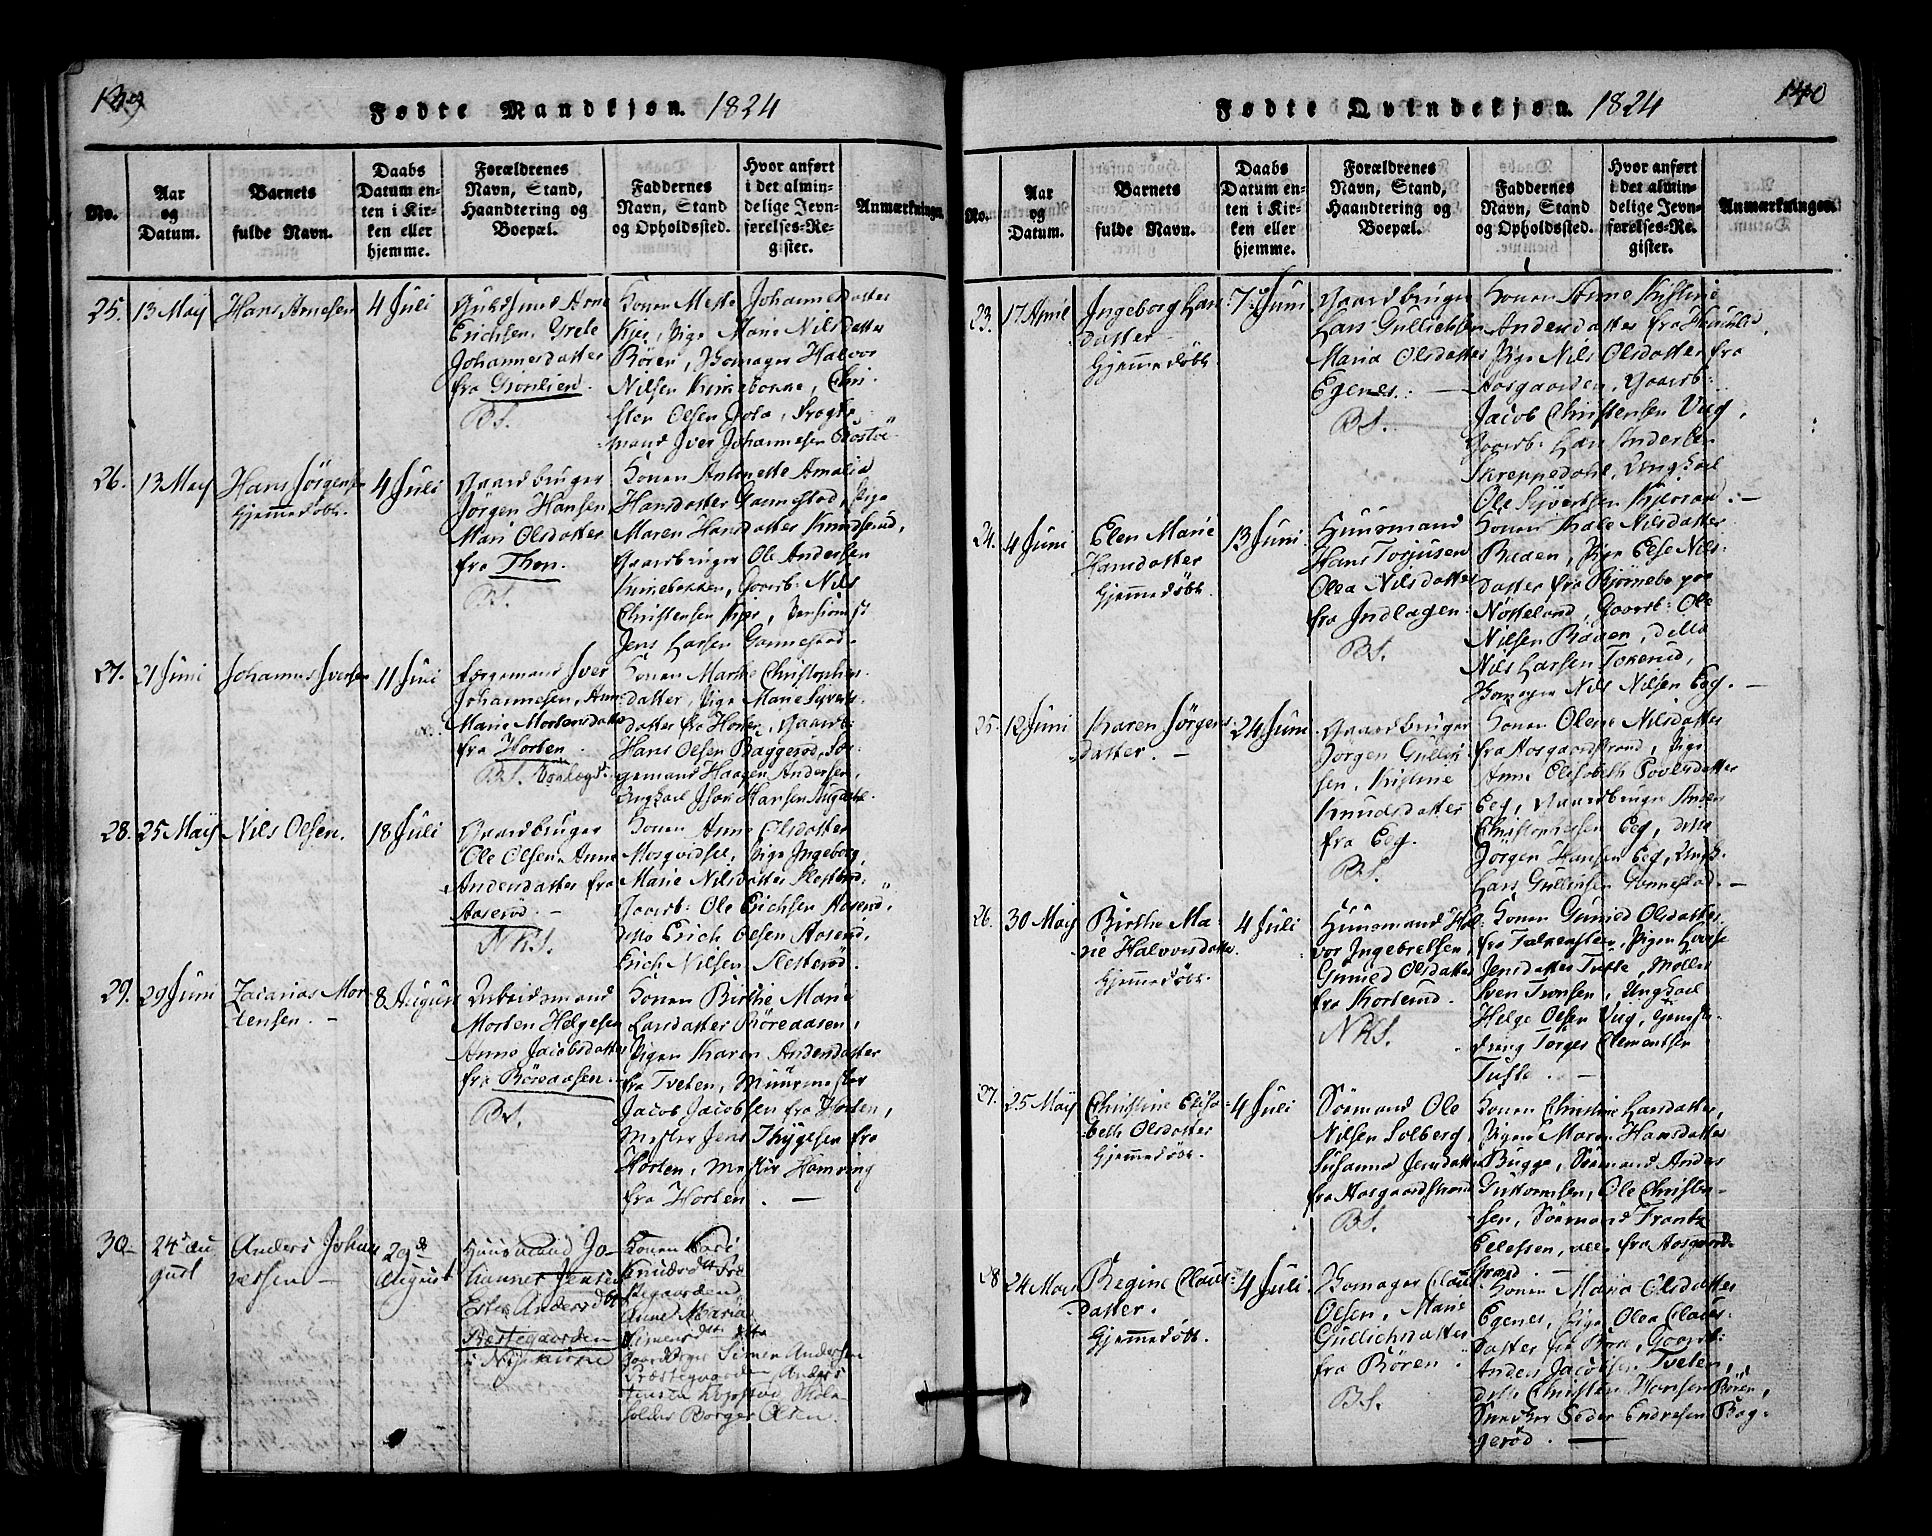 139
Fødte Mandkjøn. 1824
No.
Aar
og
Datum.
Barnets
fulde Navn.
Daabs
Datum en-
ten i Kir-
ken eller
hjemme.
Forældrenes
Navn, Stand,
Haandtering og
Boepæl.
Faddernes
Navn, Stand
og Opholdssted.
Hvor anført
i det almin-
delige Jevn-
førelses-Re-
gister.
Anmærkninger.
25.
13 May
Hans Arnesen
4 Juli
Huusmand Arne
Erichsen, Grete
Johannesdatter
fra Grønlien.
B.S.
Konen Mette Johannesdatter
Kjær, Pige Marie Nilsdatter
Røren, Bomager Halvor
Nilsen Kimebonne, Chri-
sten Olsen
mand Iver Johannesen
26.
13 May
Hans Jörgensen
Hjemmedøbt.
4 Juli
Gaardbruger
Jörgen Hansen
Mari Olsdatter
fra Thon.
B.S.
Konen Antonette Amalia
Hansdatter Gannestad, Pige
Maren Hansdatter Knudsrud,
Gaardbruger Ole Andersen
Kimebakken, Gaarb: Nils
Christensen Kjær, Pensionist
Jens Larsen Gannestad.
27.
21 Juni
Johannes Iversen
11 Juli
Iver
Johannesen, Anne
Marie Mortensdatter
fra Horten
B.S.
Konen Marthe Christophers-
datter, Pige Marie Syverts-
datter fra Horten, Gaarb:
Hans Olsen Baggerød, Sør-
gemand Haagen Andersen,
Ungkarl Hansen
28.
25 May
Nils Olsen.
18 Juli
Gaardbruger
Ole Olsen, Anne
Andersdatter fra
Aaserød. —
N.K.S.
Konen Anne Olsdatter
Mosqvidsel, Pige Ingeborg
Marie Nilsdatter Sletterød,
Gaarb: Ole Erichsen Aaserød,
ditto Erich Olsen Aaserød,
Erich Nilsen Sletterød.
29.
29 Juni
Zacarias Mor-
tensen. —
8 August
Arbeidsmand
Morten Helgesen
Anne Jacobsdatter
fra Röreaasen.
B.S.
Konen Birthe Marie
Larsdatter Röreaasen,
Pigen Karen Andersdatter
fra Tveten, Muurmester
Jacob Jacobsen fra Horten,
Mester Jens Thygesen fra
Horten, Mester Hamring
fra Horten. —
30–
24de Au
gust
Anders Johan
nessen –
29de
August
Huusmand Jo-
hannes Jensen
Andersdtr
Præstegaarden
i Nykirke
Konen Kari
Knudsdtr Præ
stegaarden
Anne Maria
Simensdtr ditto
Gaardbruger Simen Andersen
Præstegaarden Anders
Jensen
Borger Olsen
140
Fødte Qvindekjøn. 1824
No.
Aar
og
Datum.
Barnets
fulde Navn.
Daabs
Datum en-
ten i Kir-
ken eller
hjemme.
Forældrenes
Navn, Stand,
Haandtering og
Boepæl.
Faddernes
Navn, Stand
og Opholdssted.
Hvor anført
i det almin-
delige Jevn-
førelses-Re-
gister.
Anmærkninger.
23.
17 April
Ingeborg Lars
datter
Hjemmedøbt
7 Juni
Gaardbruger
Lars Gullichsen
Maria Olsdatter
Egenes. —
B.S.
Konen Anne Kristine
Andersdatter fra
Pige Nils Olsdatter fra
Aasgaarden, Gaarb:
Jacob Christensen Vug,
Gaarb: Lars Andersen
Skreppedahl, Ungkarl
Ole Syvertsen Kjæraas. —
24.
4 Juni
Elen Marie
Hansdatter
Hjemmedøbt.
13 Juni
Huusmand
Hans Torjusen
Olea Nilsdatter
fra Indlagen.
B.S.
Konen Kale Nilsdatter
Baaen, Pige Else Nils-
datter fra Bjørnebo paa
Nordeland, Gaarb: Ole
Nilsen Baaen, ditto
Nils Larsen Tokerud,
Bomager Nils Nilsen Eeg. —
25.
12 Juni
Karen Jörgens
datter. —
24 Juni
Gaardbruger
Jörgen Gullich
sen, Kristine
Knudsdatter
fra Eeg.
B.S.
Konen Olene Nilsdatter
fra Aasgaardstrand, Pige
Anne Elisabeth Povelsdatter
Eeg, Gaardbruger Anders
Christophersen Eeg, ditto
Jörgen Hansen Eeg, Ungk.
Lars Gullichsen Gannestad. —
26.
30 May
Birthe Ma-
rie Halvorsdatter
Hjemmedøbt.
4 Juli
Huusmand Hal-
vor Ingebretsen,
Gunild Olsdatter
fra Korterud.
N.K.S.
Konen Gunild Olsdatter
fra Falkensteen, Pigen
Jensdatter Tufte, Møller
Sven Tronsen, Ungkarl
Helge Olsen Vug,
dreng Torger Clementsen
Tufte. —
27.
25 May
Christine Elisa-
beth Olsdatter
Hjemmedøbt.
4 Juli
Sømand Ole
Nilsen Solberg
Susanne Jensdatter
fra Aasgaardstrand
B.S.
Konen Christine Larsdatter,
Pigen Maren Hansdatter
Bugge, Sømand Anders
Guttormsen, Ole Christen-
sen, Sømand Frantz
Ellefsen, alle fra Aasgaard-
strand —
28
24 May
Regine Claus-
datter.
Hjemmedøbt.
4 Juli
Bomager Claus
Olsen, Marie
Gullichsdatter
fra Rören
B.S.
Konen Maria Olsdatter
Egenes, Pige Olea Claus-
datter fra Born, Gaarb:
Anders Jacobsen Tveten,
ditto Christen Hansen Rören,
Snedker Peder Endresen Bag-
gerød. —